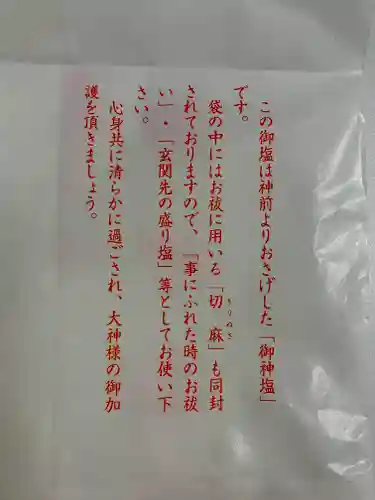 この御塩は神前よりおさげした「御神塩」
です。
袋の中にはお祓に用いる「切麻」も同封
きりぬさ
されておりますので、「事にふれた時のお祓
い」・「玄関先の盛り塩」等としてお使い下
さい。
心身共に清らかに過ごされ、大神様の御加
護を頂きましょう。